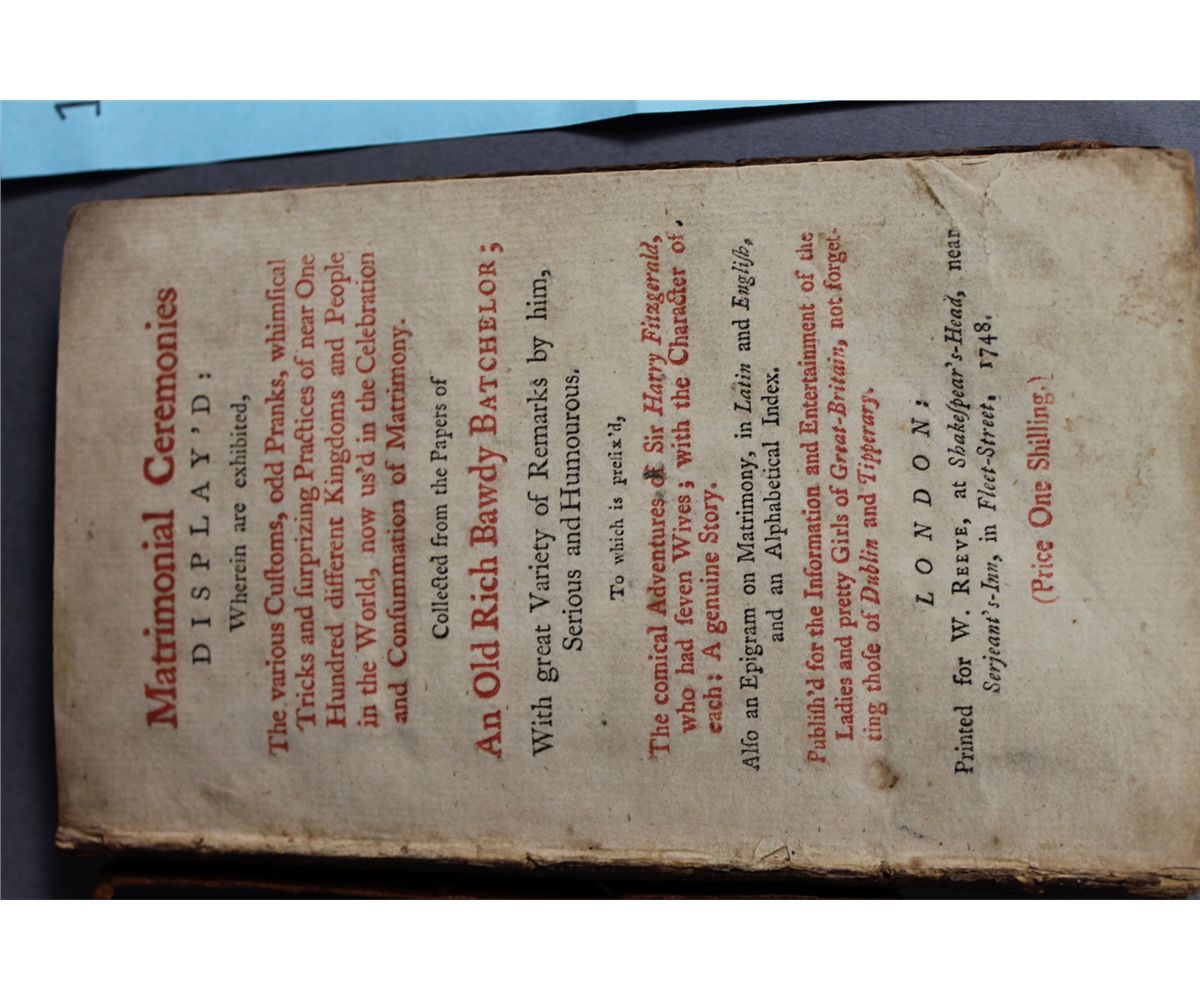 Matrimonial Ceremonies
DISPLAY'D:
Wherein are exhibited,
The various Cuſtoms, odd Pranks, whimſical
Tricks and ſurprizing Practices of near One
Hundred different Kingdoms and People
in the World, now us'd in the Celebration
and Conſummation of Matrimony.
Collected from the Papers of
An Old Rich Bawdy BATCHELOR;
With great Variety of Remarks by him,
Serious and Humourous.
To which is prefix'd,
The comical Adventures of Sir Harry Fitzgerald,
who had ſeven Wives; with the Character of
each: A genuine Story.
Alſo an Epigram on Matrimony, in Latin and Engliſh,
and an Alphabetical Index.
Publiſh'd for the Information and Entertainment of the
Ladies and pretty Girls of Great-Britain, not forget-
ting thoſe of Dublin and Tipperary.
LONDON;
Printed for W. REEVE, at Shakeſpear's-Head, near
Serjeant's-Inn, in Fleet-Street. 1748.
(Price One Shilling.)
1